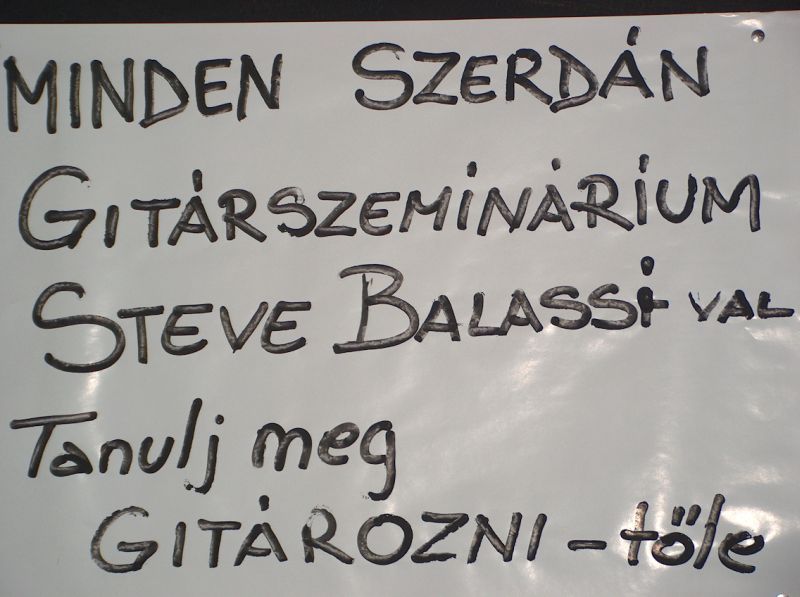 MINDEN SZERDÁN
GITÁRSZEMINÁRIUM
STEVE BALASSI VAL
Tanulj meg
GITÁROZNI - tőle